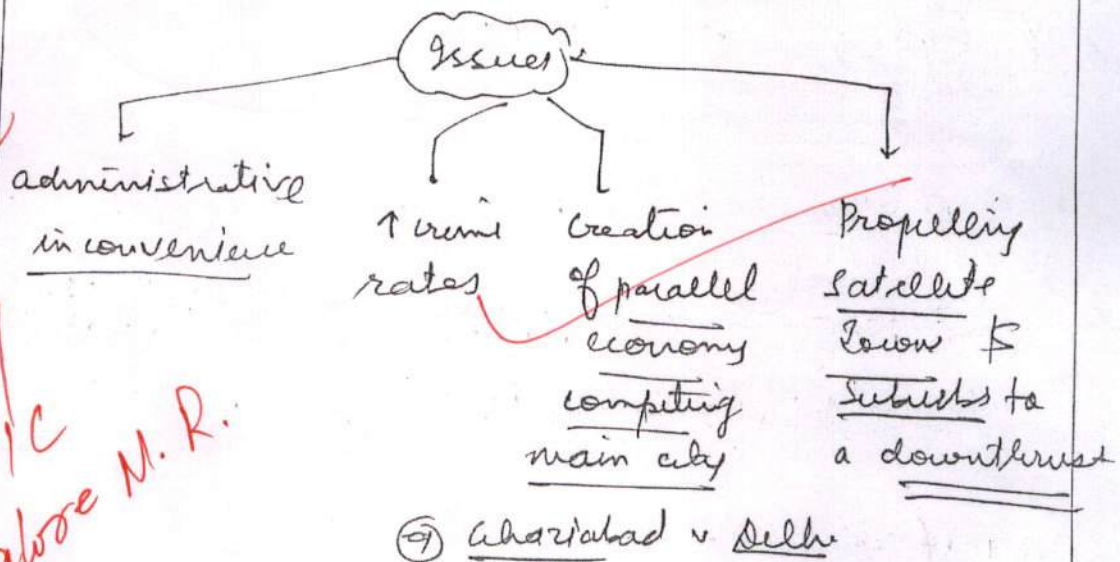 Issues
administrative
inconvenience
↑ crime
rates
Creation
of parallel
economy
competing
main city
Propelling
Satellite
Towns &
Suburbs to
a downthrust
eg Ghaziabad v Delhi
M. R.